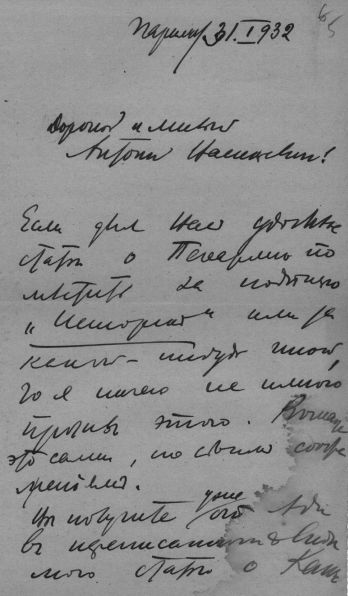 Париж, 31.I 1932
65
Дорогой и милый
Антоний Васильевич!
Если для Вас удобнее
статью о Печерине по
местить за подписью
„Историка“ или за
какой-нибудь иной,
то я ничего не имею
против этого. Решайте
это сами, по своим сообра
жениям.
Вы получите уже от Ади
в переписанном виде
мою статью о